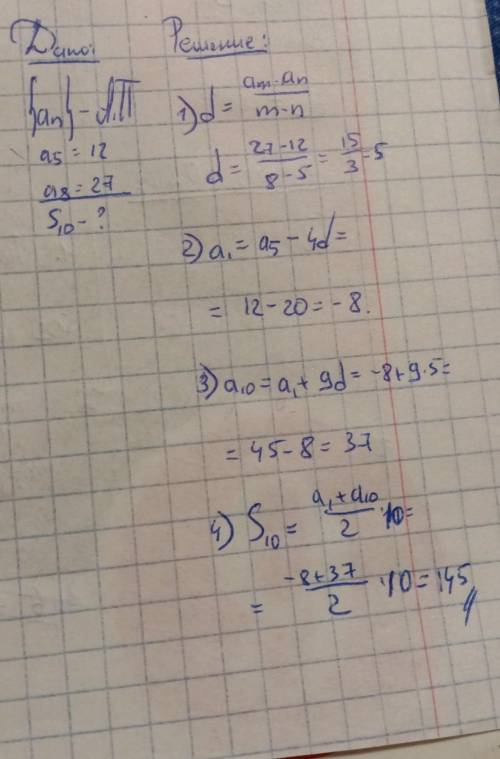 Дано:
{an} - А.П
a5 = 12
a8 = 27
S10 - ?
Решение:
1) d = am - an / m - n
d = 27 - 12 / 8 - 5 = 15 / 3 = 5
2) a1 = a5 - 4d =
= 12 - 20 = -8.
3) a10 = a1 + 9d = -8 + 9·5 =
= 45 - 8 = 37
4) S10 = a1 + a10 / 2 · 10 =
= -8 + 37 / 2 · 10 = 145